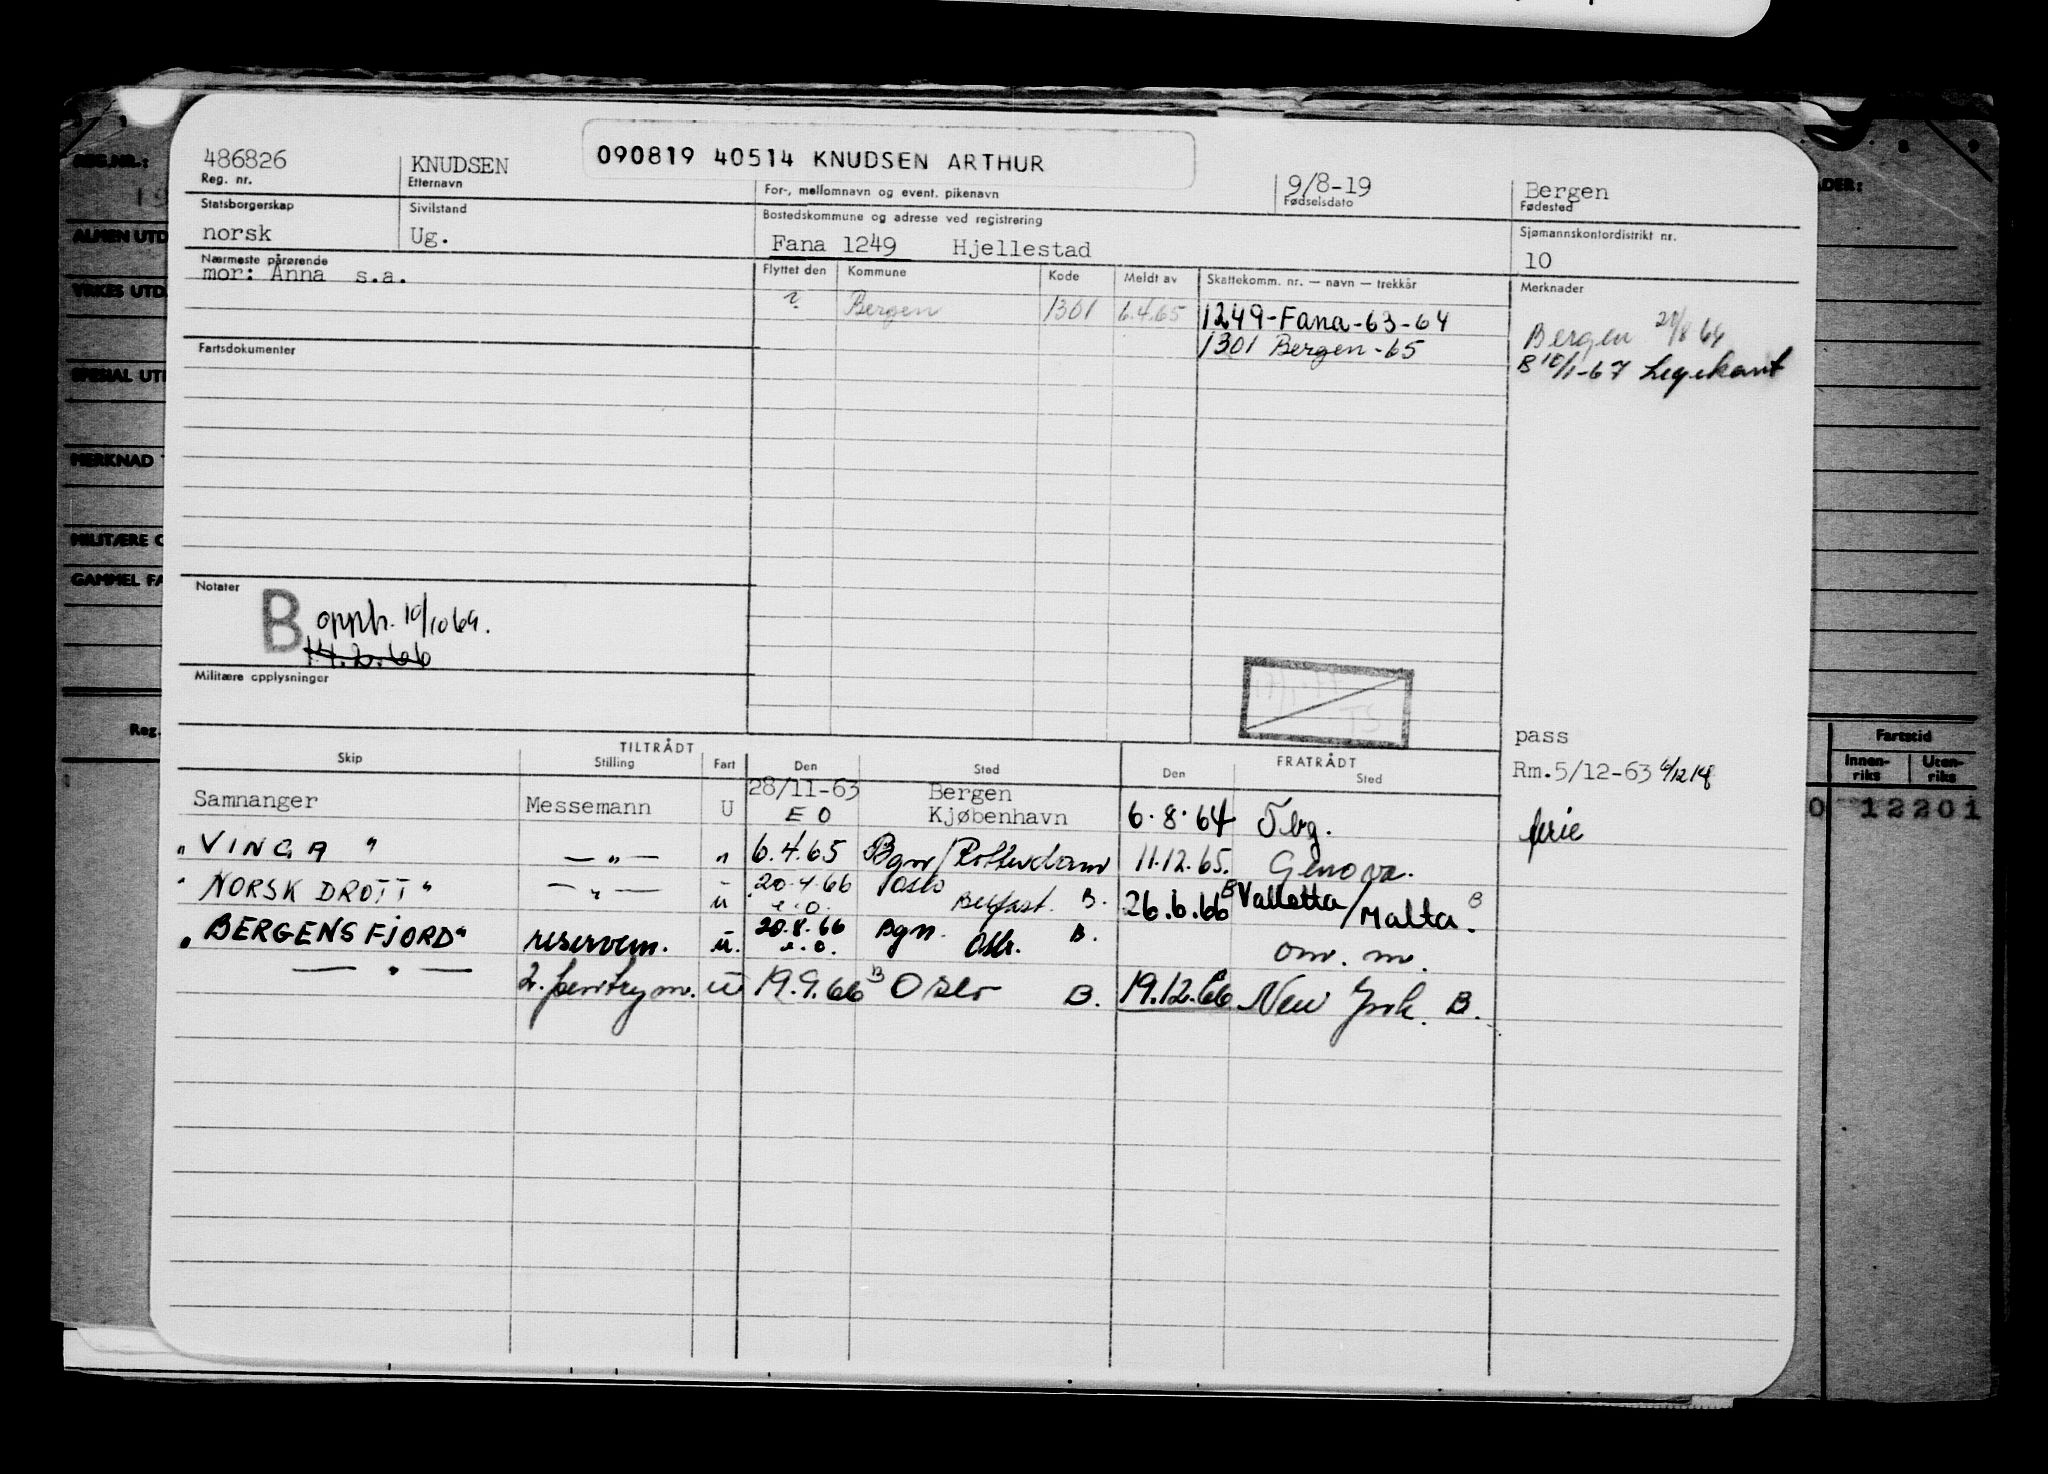 486826
Reg. nr.
KNUDSEN
Etternavn
090819 40514 KNUDSEN ARTHUR
For-, mellomnavn og event. pikenavn
9/8-19
Fødselsdato
Bergen
Fødested
Statsborgerskap
norsk
Sivilstand
Ug.
Bostedskommune og adresse ved registrering
Fana 1249 Hjellestad
Sjømannskontordistrikt nr.
10
Nærmeste pårørende
mor: Anna s.a.
Flyttet den Kommune Kode Meldt av Skattekomm. nr. — navn — trekkår Merknader
? Bergen 1301 6.4.65 1249-Fana-63-64
1301 Bergen-65
Bergen 21/8 64
B 10/1-67 Legekont
Fartsdokumenter
Notater
B opph. 10/10 64.
14.2.66
Militære opplysninger
TS
pass
Rm.5/12-63
TILTRÅDT FRATRÅDT
Skip Stilling Fart Den Sted Den Sted
Samnanger Messemann U 28/11-63 Bergen
E O Kjøbenhavn 6.8.64 Tbg. ferie
"VINGA" —"— " 6.4.65 Bgn/Rotterdam 11.12.65. Genova.
"NORSK DROTT" —"— u 20.4.66 Oslo
e.o. Belfast. B. 26.6.66 B Valletta/Malta. B
"BERGENSFJORD" reservem. u. 20.8.66 Bgn.
e.o. Oslo. B. om. m.
—"— 2. pentrym. u 19.9.66 B Oslo B. 19.12.66 New York. B.
REG.NR.:
ALMEN UTD
YRKES UTD.
SPESIAL UTD
MERKNAD
MILITÆRE O
GAMMEL FA
Reg.
ADER:
Fartstid
Innen-riks Uten-riks
0 12201